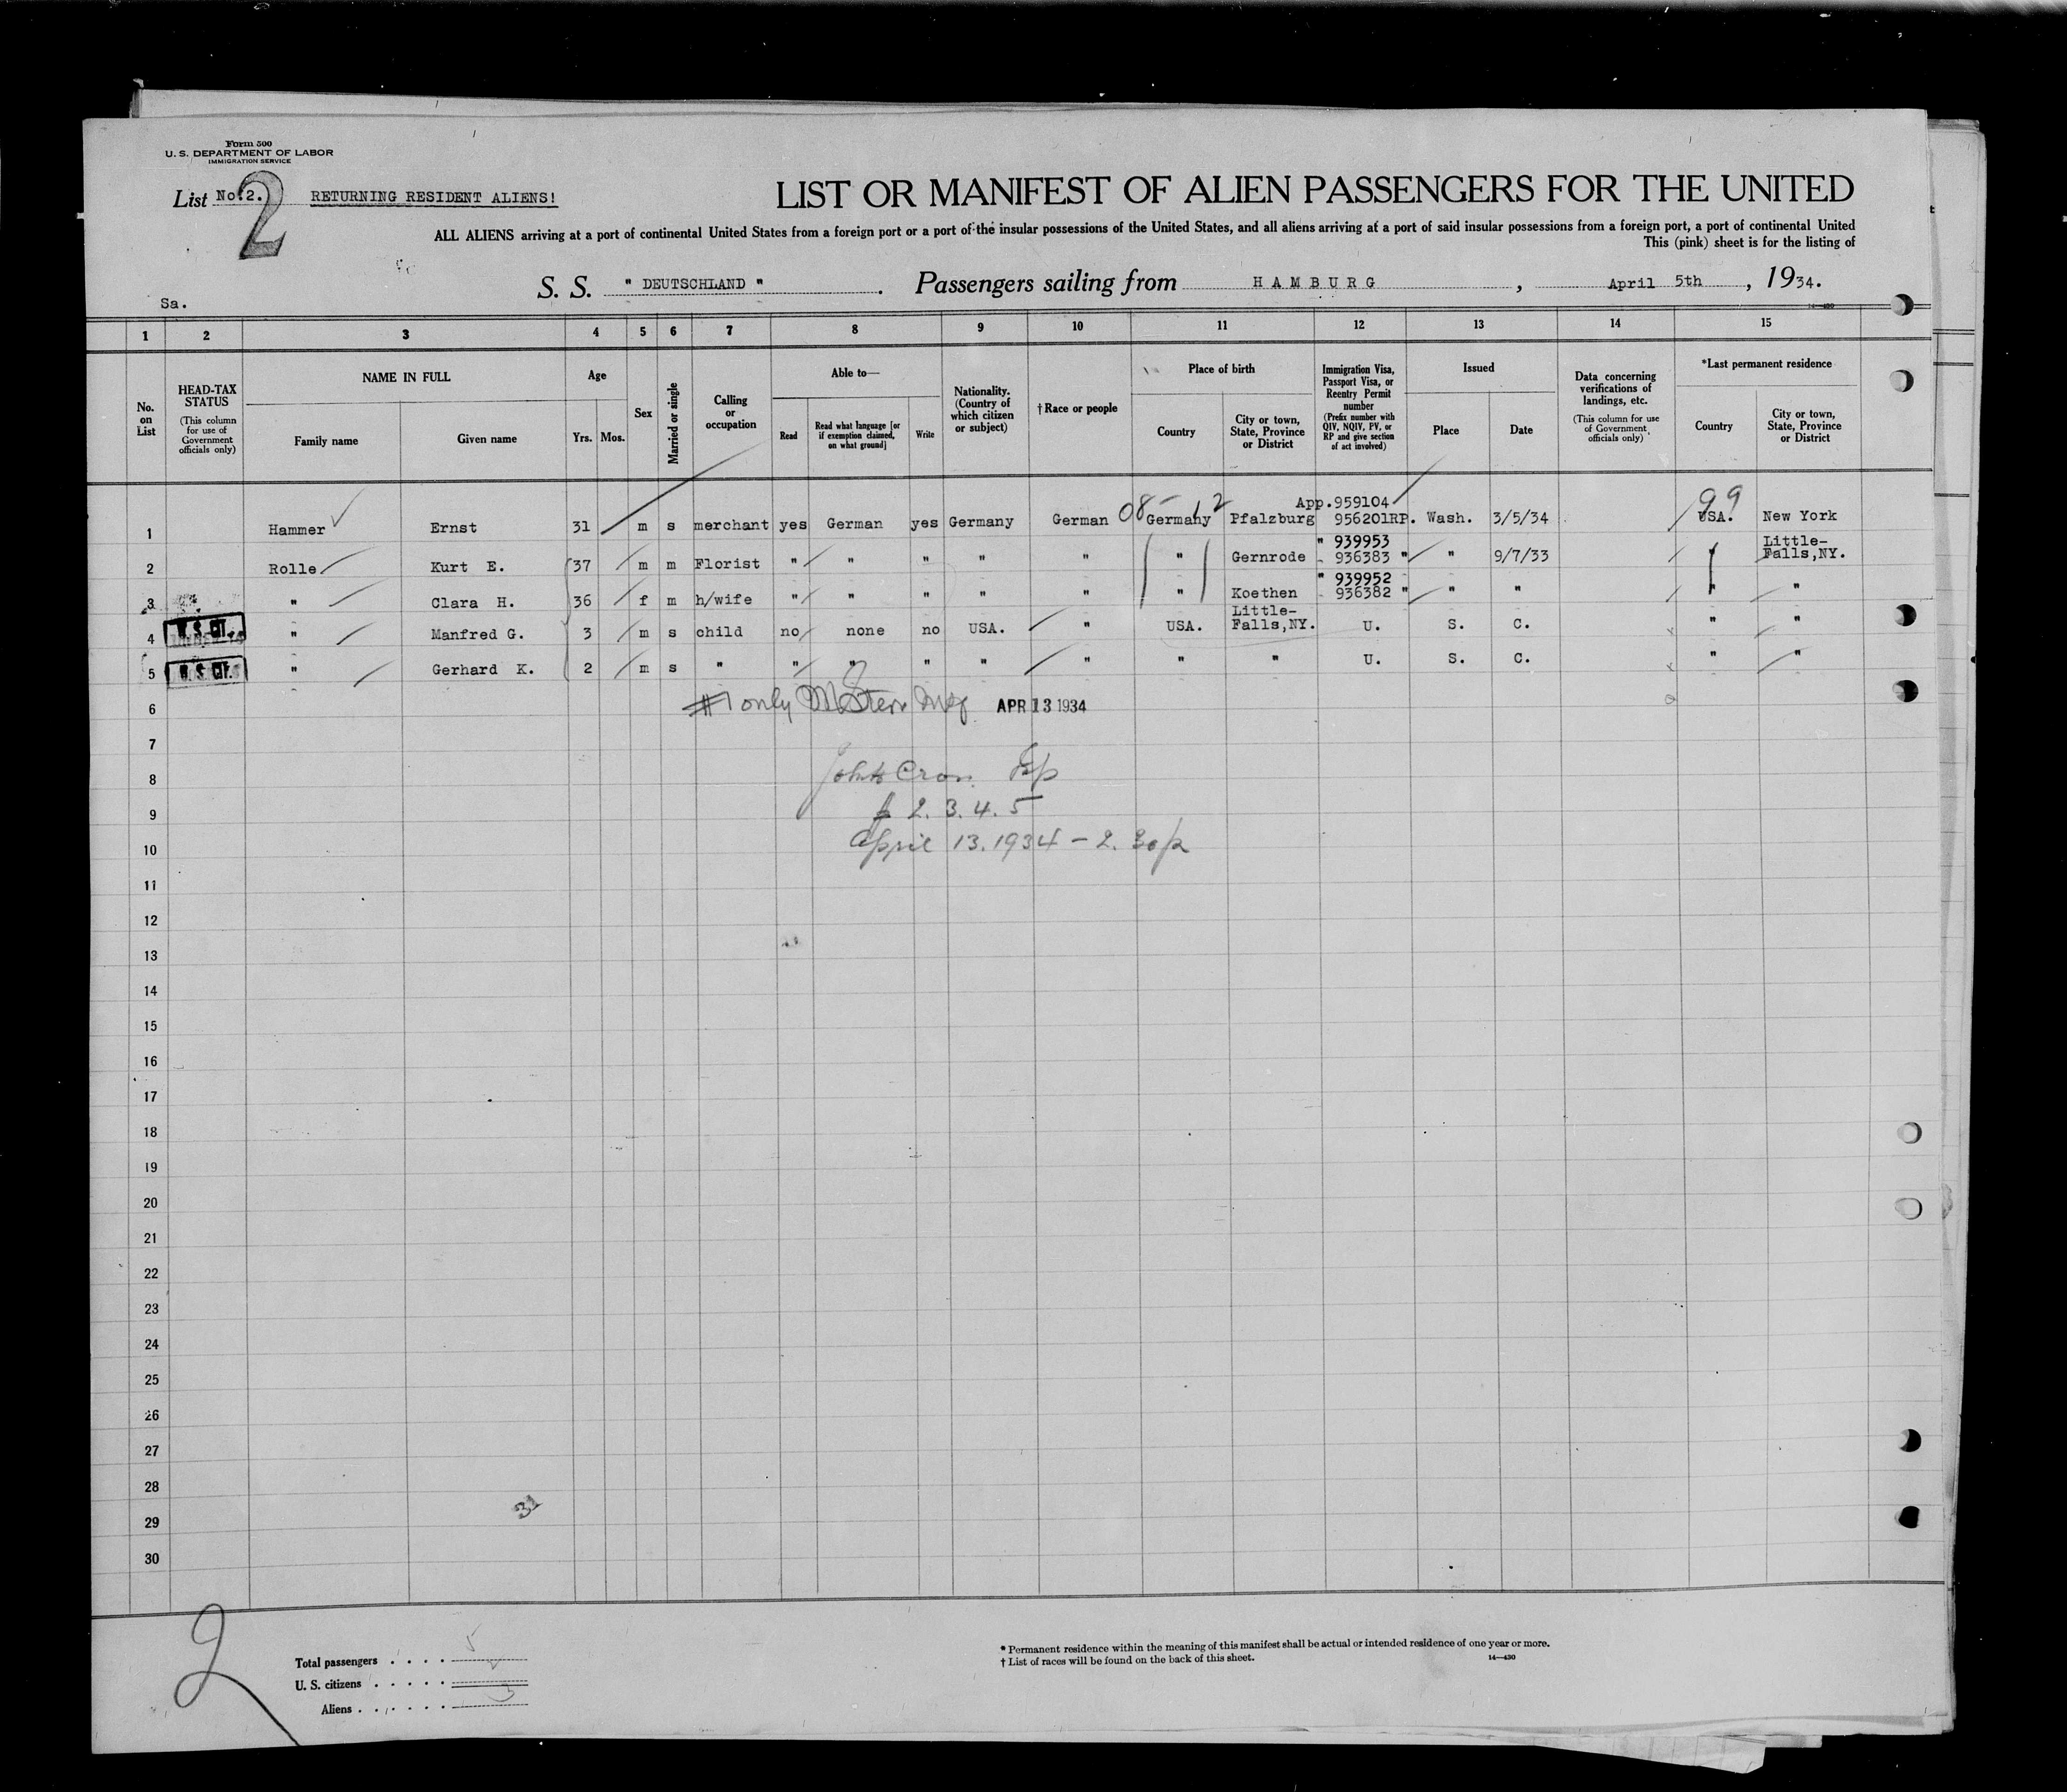 Form 500
U. S. DEPARTMENT OF LABOR
IMMIGRATION SERVICE
List No. 2. RETURNING RESIDENT ALIENS!
2
LIST OR MANIFEST OF ALIEN PASSENGERS FOR THE UNITED
ALL ALIENS arriving at a port of continental United States from a foreign port or a port of the insular possessions of the United States, and all aliens arriving at a port of said insular possessions from a foreign port, a port of continental United
This (pink) sheet is for the listing of
S. S. " DEUTSCHLAND " . Passengers sailing from HAMBURG , April 5th , 1934.
Sa.
14—430
1 2 3 4 5 6 7 8 9 10 11 12 13 14 15
No. on List
HEAD-TAX STATUS
(This column for use of Government officials only)
NAME IN FULL
Family name Given name
Age
Yrs. Mos.
Sex
Married or single
Calling or occupation
Able to—
Read
Read what language [or if exemption claimed, on what ground]
Write
Nationality. (Country of which citizen or subject)
†Race or people
Place of birth
Country
City or town, State, Province or District
Immigration Visa, Passport Visa, or Reentry Permit number
(Prefix number with QIV, NQIV, PV, or RP and give section of act involved)
Issued
Place Date
Data concerning verifications of landings, etc.
(This column for use of Government officials only)
*Last permanent residence
Country
City or town, State, Province or District
App.959104
99
1 Hammer Ernst 31 m s merchant yes German yes Germany German 08 Germany 12 Pfalzburg 956201RP. Wash. 3/5/34 USA. New York
" 939953 Little-
2 Rolle Kurt E. 37 m m Florist " " " " " " Gernrode 936383 " " 9/7/33 " Falls,NY.
" 939952
3 " Clara H. 36 f m h/wife " " " " " " Koethen 936382 " " " " "
Little-
4 U. S. CIT. " Manfred G. 3 m s child no none no USA. " USA. Falls,NY. U. S. C. " "
5 U. S. CIT. " Gerhard K. 2 m s " " " " " " " " U. S. C. " "
6 #1 only Stern Insp APR 13 1934
7
8 Cron Isp
9 2. 3. 4. 5
10 April 13. 1934 – 2. 30 p
11
12
13
14
15
16
17
18
19
20
21
22
23
24
25
26
27
28
29
30
31
2
Total passengers . . . . 5
U. S. citizens . . . . . 2
Aliens . . . . . . 3
* Permanent residence within the meaning of this manifest shall be actual or intended residence of one year or more.
† List of races will be found on the back of this sheet.
14—430